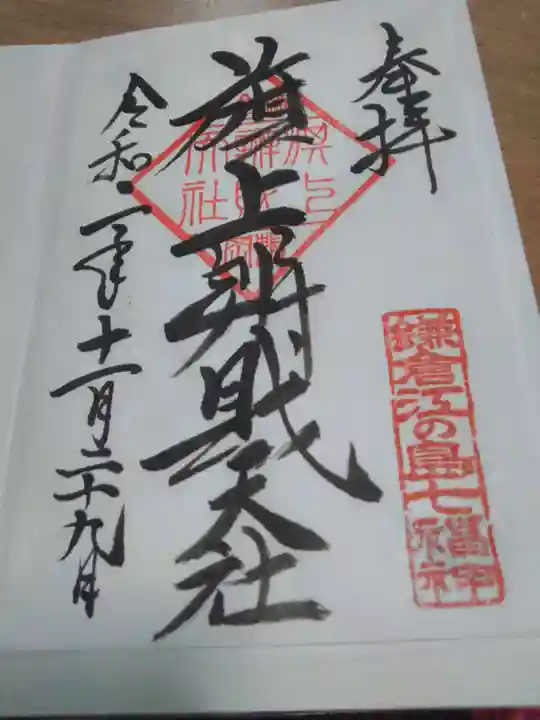 奉拝
鎌倉江の島七福神
旗上弁財天社
令和二年十一月二十九日